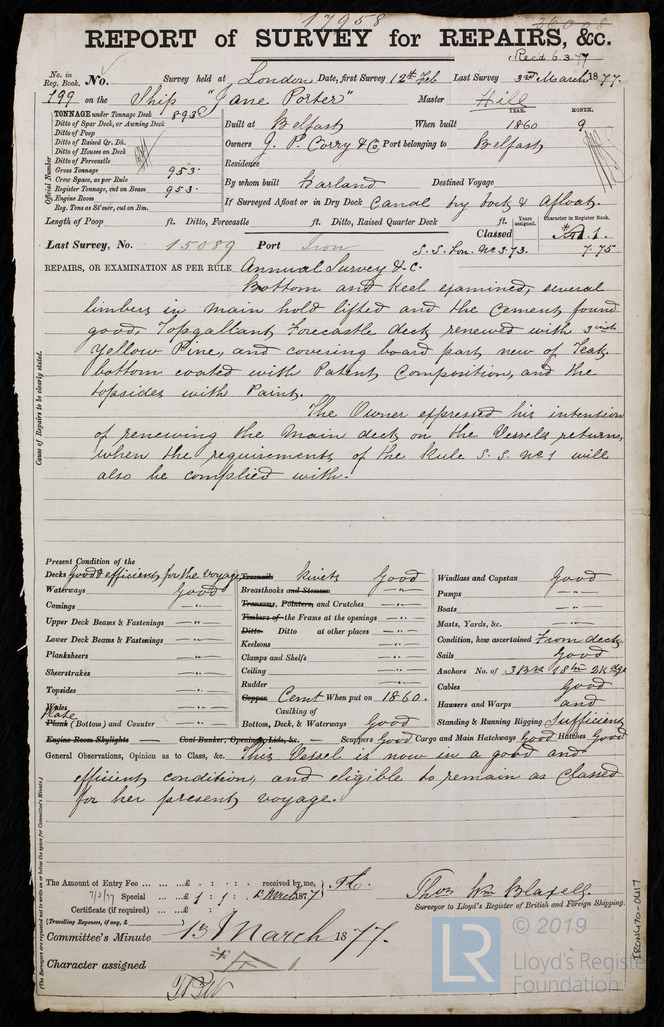 17958
36008
REPORT of SURVEY for REPAIRS, &c.
Rec'd 6.3.77
No. in Reg. Book. No. Survey held at London Date, first Survey 12th Feb Last Survey 3rd March 1877.
199 on the Ship "Jane Porter" Master Hill
TONNAGE under Tonnage Deck 893
Ditto of Spar Deck, or Awning Deck
Ditto of Poop
Ditto of Raised Qr. Dk.
Ditto of Houses on Deck
Ditto of Forecastle
Gross Tonnage 953.
Crew Space, as per Rule
Register Tonnage, cut on Beam 953.
Engine Room
Reg. Tons as St'mer, cut on Bm.
Official Number
YEAR. MONTH.
Built at Belfast When built 1860 9
Owners J. P. Corry & Co Port belonging to Belfast
Residence
By whom built Harland Destined Voyage
If Surveyed Afloat or in Dry Dock Canal dry dock & Afloat.
Length of Poop ft. Ditto, Forecastle ft. Ditto, Raised Quarter Deck ft.
Years assigned. Character in Register Book.
Classed A.1.
Last Survey, No. 15089 Port Iron
S.S. Lon. No 3.73. 7.75
REPAIRS, OR EXAMINATION AS PER RULE Annual Survey &c.
Bottom and keel examined, several
limbers in main hold lifted and the cement found
good, Topgallant Forecastle deck renewed with 3 inch
Yellow Pine, and covering board part new of Teak
bottom coated with Patent Composition, and the
topsides with Paint.
The Owner expressed his intention
of renewing the main deck on the Vessels return,
when the requirements of the Rule S.S. No 1 will
also be complied with.
Cause of Repairs to be clearly stated.
Present Condition of the
Decks Good & efficient for the voyage
Waterways Good
Comings —"—
Upper Deck Beams & Fastenings —"—
Lower Deck Beams & Fastenings —"—
Planksheers —"—
Sheerstrakes —"—
Topsides —"—
Wales —"—
Plate
Plank (Bottom) and Counter —"—
Engine Room Skylights — Coal Bunker, Openings, Lids, &c. —
Treenails Rivets Good
Breasthooks and Stemson —"—
Transoms, Pointers, and Crutches —"—
Timbers of the Frame at the openings —"—
Ditto Ditto at other places —"—
Keelsons —"—
Clamps and Shelfs —"—
Ceiling —"—
Rudder —"—
Copper Cemt When put on 1860.
Caulking of
Bottom, Deck, & Waterways Good
Scuppers Good Cargo and Main Hatchways Good Hatches Good
Windlass and Capstan Good
Pumps —"—
Boats —"—
Masts, Yards, &c. —"—
Condition, how ascertained From deck
Sails Good
Anchors No. of 3 Brs 1 Stm 2 Kdge
Cables Good
Hawsers and Warps and
Standing & Running Rigging Sufficient
General Observations, Opinion as to Class, &c. This Vessel is now in a good and
efficient condition, and eligible to remain as Classed
for her present voyage.
(The Surveyors are requested not to write on or below the space for Committee's Minute.)
The Amount of Entry Fee ... ... ... £ : : received by me,
7/3/77 Special ... £ 1 : 1 : March 1877
Certificate (if required) ... £ : :
(Travelling Expenses, if any, £ )
Thos Wm Blaxell.
Surveyor to Lloyd's Register of British and Foreign Shipping.
Committee's Minute 13 March 1877.
Character assigned
IRON470-0417
LR
© 2019
Lloyd's Register
Foundation